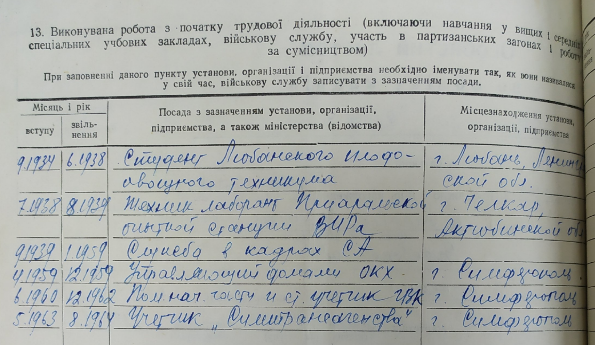 13. Виконувана робота з початку трудової діяльності (включаючи навчання у вищих і середніх
спеціальних учбових закладах, військову службу, участь в партизанських загонах і роботу
за сумісництвом)
При заповненні даного пункту установи, організації і підприємства необхідно іменувати так, як вони називалися
у свій час, військову службу записувати з зазначенням посади.
Місяць і рік
вступу
звіль-
нення
Посада з зазначенням установи, організації,
підприємства, а також міністерства (відомства)
Місцезнаходження установи,
організації, підприємства
9.1934 6.1938 Студент Любанского плодо- г. Любань, Ленинг
овощного техникума ской обл.
7.1938 8.1939 Техник лаборант Приаральской г. Челкар,
опытной станции ВИРа Актюбинской обл
9.1939 1.1959 Служба в кадрах СА
4.1959 12.1959 Управляющий домами ОКХ г. Симферополь
6.1960 12.1962 Пом. нач. части и ст. учетчик г. Симферополь
5.1963 8.1964 Учетчик „Симтрансагенства" г. Симферополь